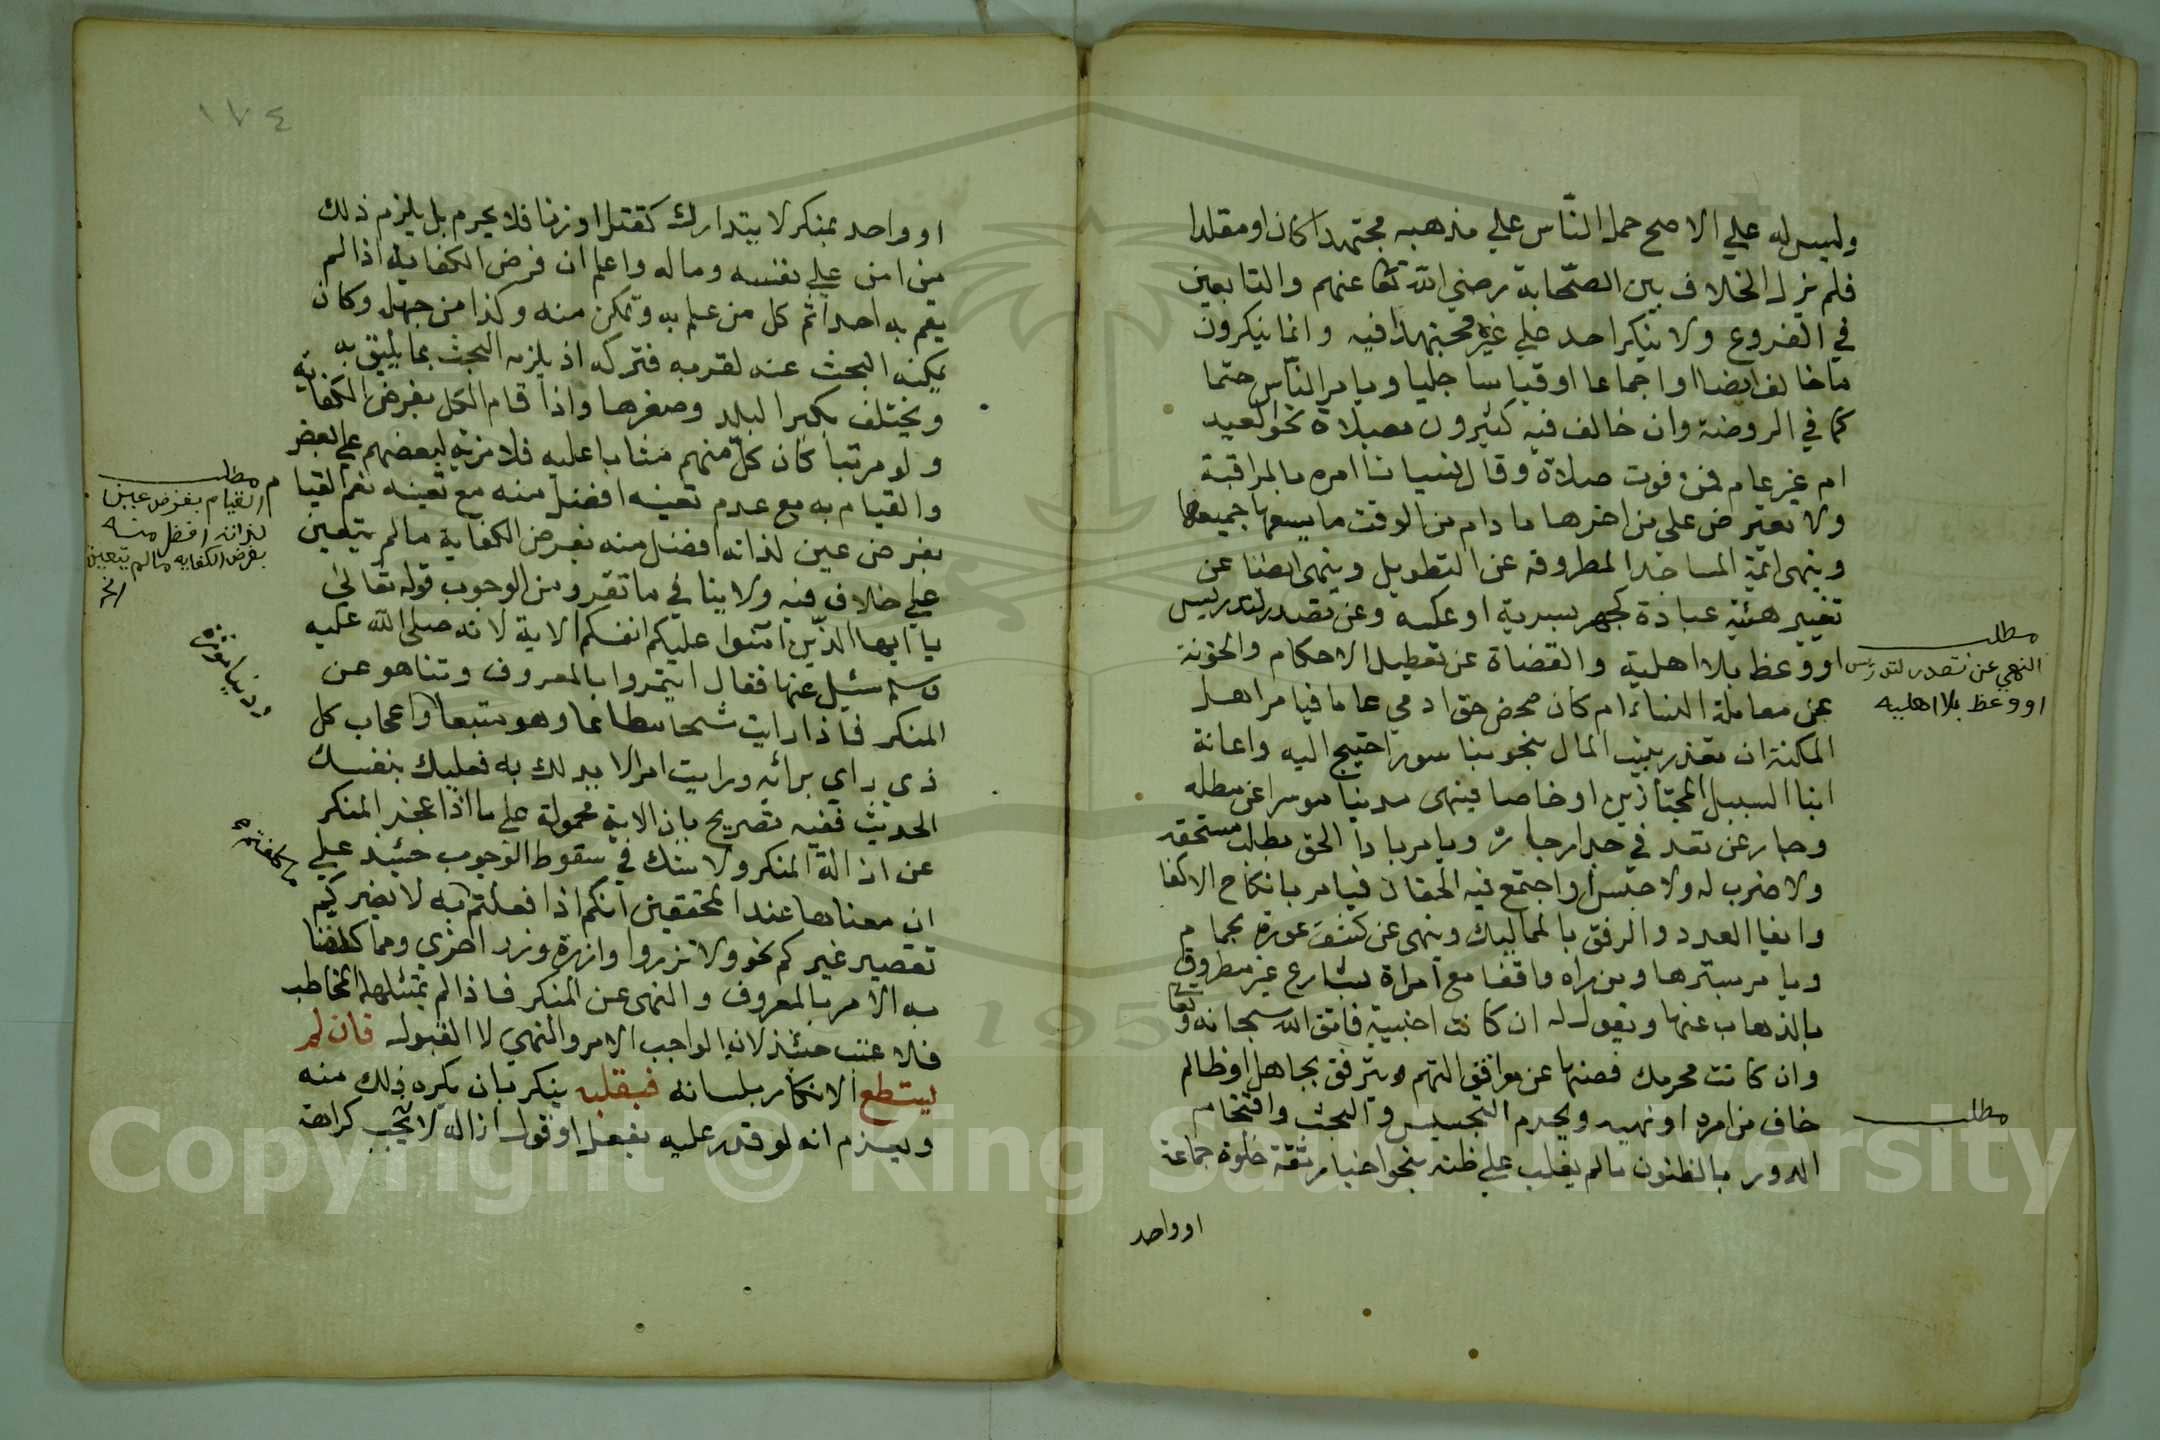 وليس له علي الاصح حمل الناس علي مذهبه مجتهدا كان او مقلدا
فلم يزل الخلاف بين الصحابة رضي الله تعا عنهم والتابعين
في الفروع ولا ينكر احد علي غيره مجتهدا فيه وانما ينكرون
ما خالف نصا او اجماعا او قياسا جليا ويامر الناس حتما
كما في الروضة وان خالف فيه كثيرون بصلاة نحو العيد
ام غير عام فمن فوت صلاة وقال نسيانا امره بالمراقبة
ولا يعترض علي من اخرها ما دام من الوقت ما يسعها جميعها
وينهي ائمة المساجد المطروقة عن التطويل وينهي ايضا عن
تغيير هيئة عبادة كجهر بسرية او عكسه وعن تصدر لتدريس
او وعظ بلا اهلية والقضاة عن تعطيل الاحكام والخونة
عن معاملة النساء ام كان محض حق ادمي عاما فيامر اهل
المكنة ان تعذر بيت المال بنحو بنا سور احتيج اليه واعانة
ابنا السبيل المجتازين او خاصا فينهي مدينا موسرا عن مطله
وجار عن تعد في جدار جاره ويامر بادا الحق بطلب مستحقه
ولا ضرب له ولا حبس او اجتمع فيه الحقان فيامر بانكاح الاكفا
وايفا العدد والرفق بالمماليك وينهي عن كشف عورة بحمام
ويامر بسترها ومن راه واقفا مع امراة بشارع غير مطروق
بالذهاب عنها ويقول له ان كانت اجنبية فاتق الله سبحانه وتعا
وان كانت محرمك فصنها عن مواقف التهم ويترفق بجاهل او ظالم
خاف من امره او نهيه ويحرم التجسيس والبحث واقتحام
الدور بالظنون ما لم يغلب علي ظنه بنحو اخبار ثقة خلوة جماعة
او واحد
مطلب
النهي عن تصدر لتدريس
او وعظ بلا اهلية
مطلب
١٧٤
او واحد بمنكر لا يتدارك كقتل او زنا فلا يحرم بل يلزم ذلك
من امن علي نفسه وماله واعلم ان فرض الكفاية اذا لم
يقم به احد اثم كل من علم به وتمكن منه وكذا من جهل وكان
يمكنه البحث عنه لقربه فتركه اذ يلزمه البحث بما يليق به
ويختلف بكبر البلد وصغرها واذا قام الكل بفرض الكفاية
ولو مرتبا كان كل منهم مثابا عليه فلا مزية لبعضهم علي بعض
والقيام به مع عدم تعينه افضل منه مع تعينه نعم القيا
بفرض عين لذاته افضل منه بفرض الكفاية ما لم يتعين
علي خلاف فيه ولا ينافي ما تقرر من الوجوب قوله تعالي
يا ايها الذين امنوا عليكم انفسكم الاية لانه صلي الله عليه
وسلم سئل عنها فقال ايتمروا بالمعروف وتناهو عن
المنكر فاذا رايت شحا مطاعا وهو متبعا واعجاب كل
ذي راي برائه ورايت امرا لا بد لك به فعليك بنفسك
الحديث ففيه تصريح بان الاية محمولة علي ما اذا عجز المنكر
عن ازالة المنكر ولا شك في سقوط الوجوب حينئذ علي
ان معناها عند المحققين انكم اذا فعلتم به لا يضركم
تقصير غيركم نحو ولا تزروا وازرة وزر اخري ومما كلفنا
به الامر بالمعروف والنهي عن المنكر فاذا لم يمتثلهما المخاطب
فلا عتب حينئذ لان الواجب الامر والنهي لا القبول فان لم
يستطع الانكار بلسانه فبقلبه ينكر بان يكره ذلك منه
ويعزم انه لو قدر عليه بفعل او قول ازاله لا يجب كراهة
مطلب
القيام بفرض عين
لذاته افضل منه
بفرض الكفايه ما لم يتعين
الخ
ودنيا مؤثرة
ما كلفتم
Copyright © King Saud University
1957